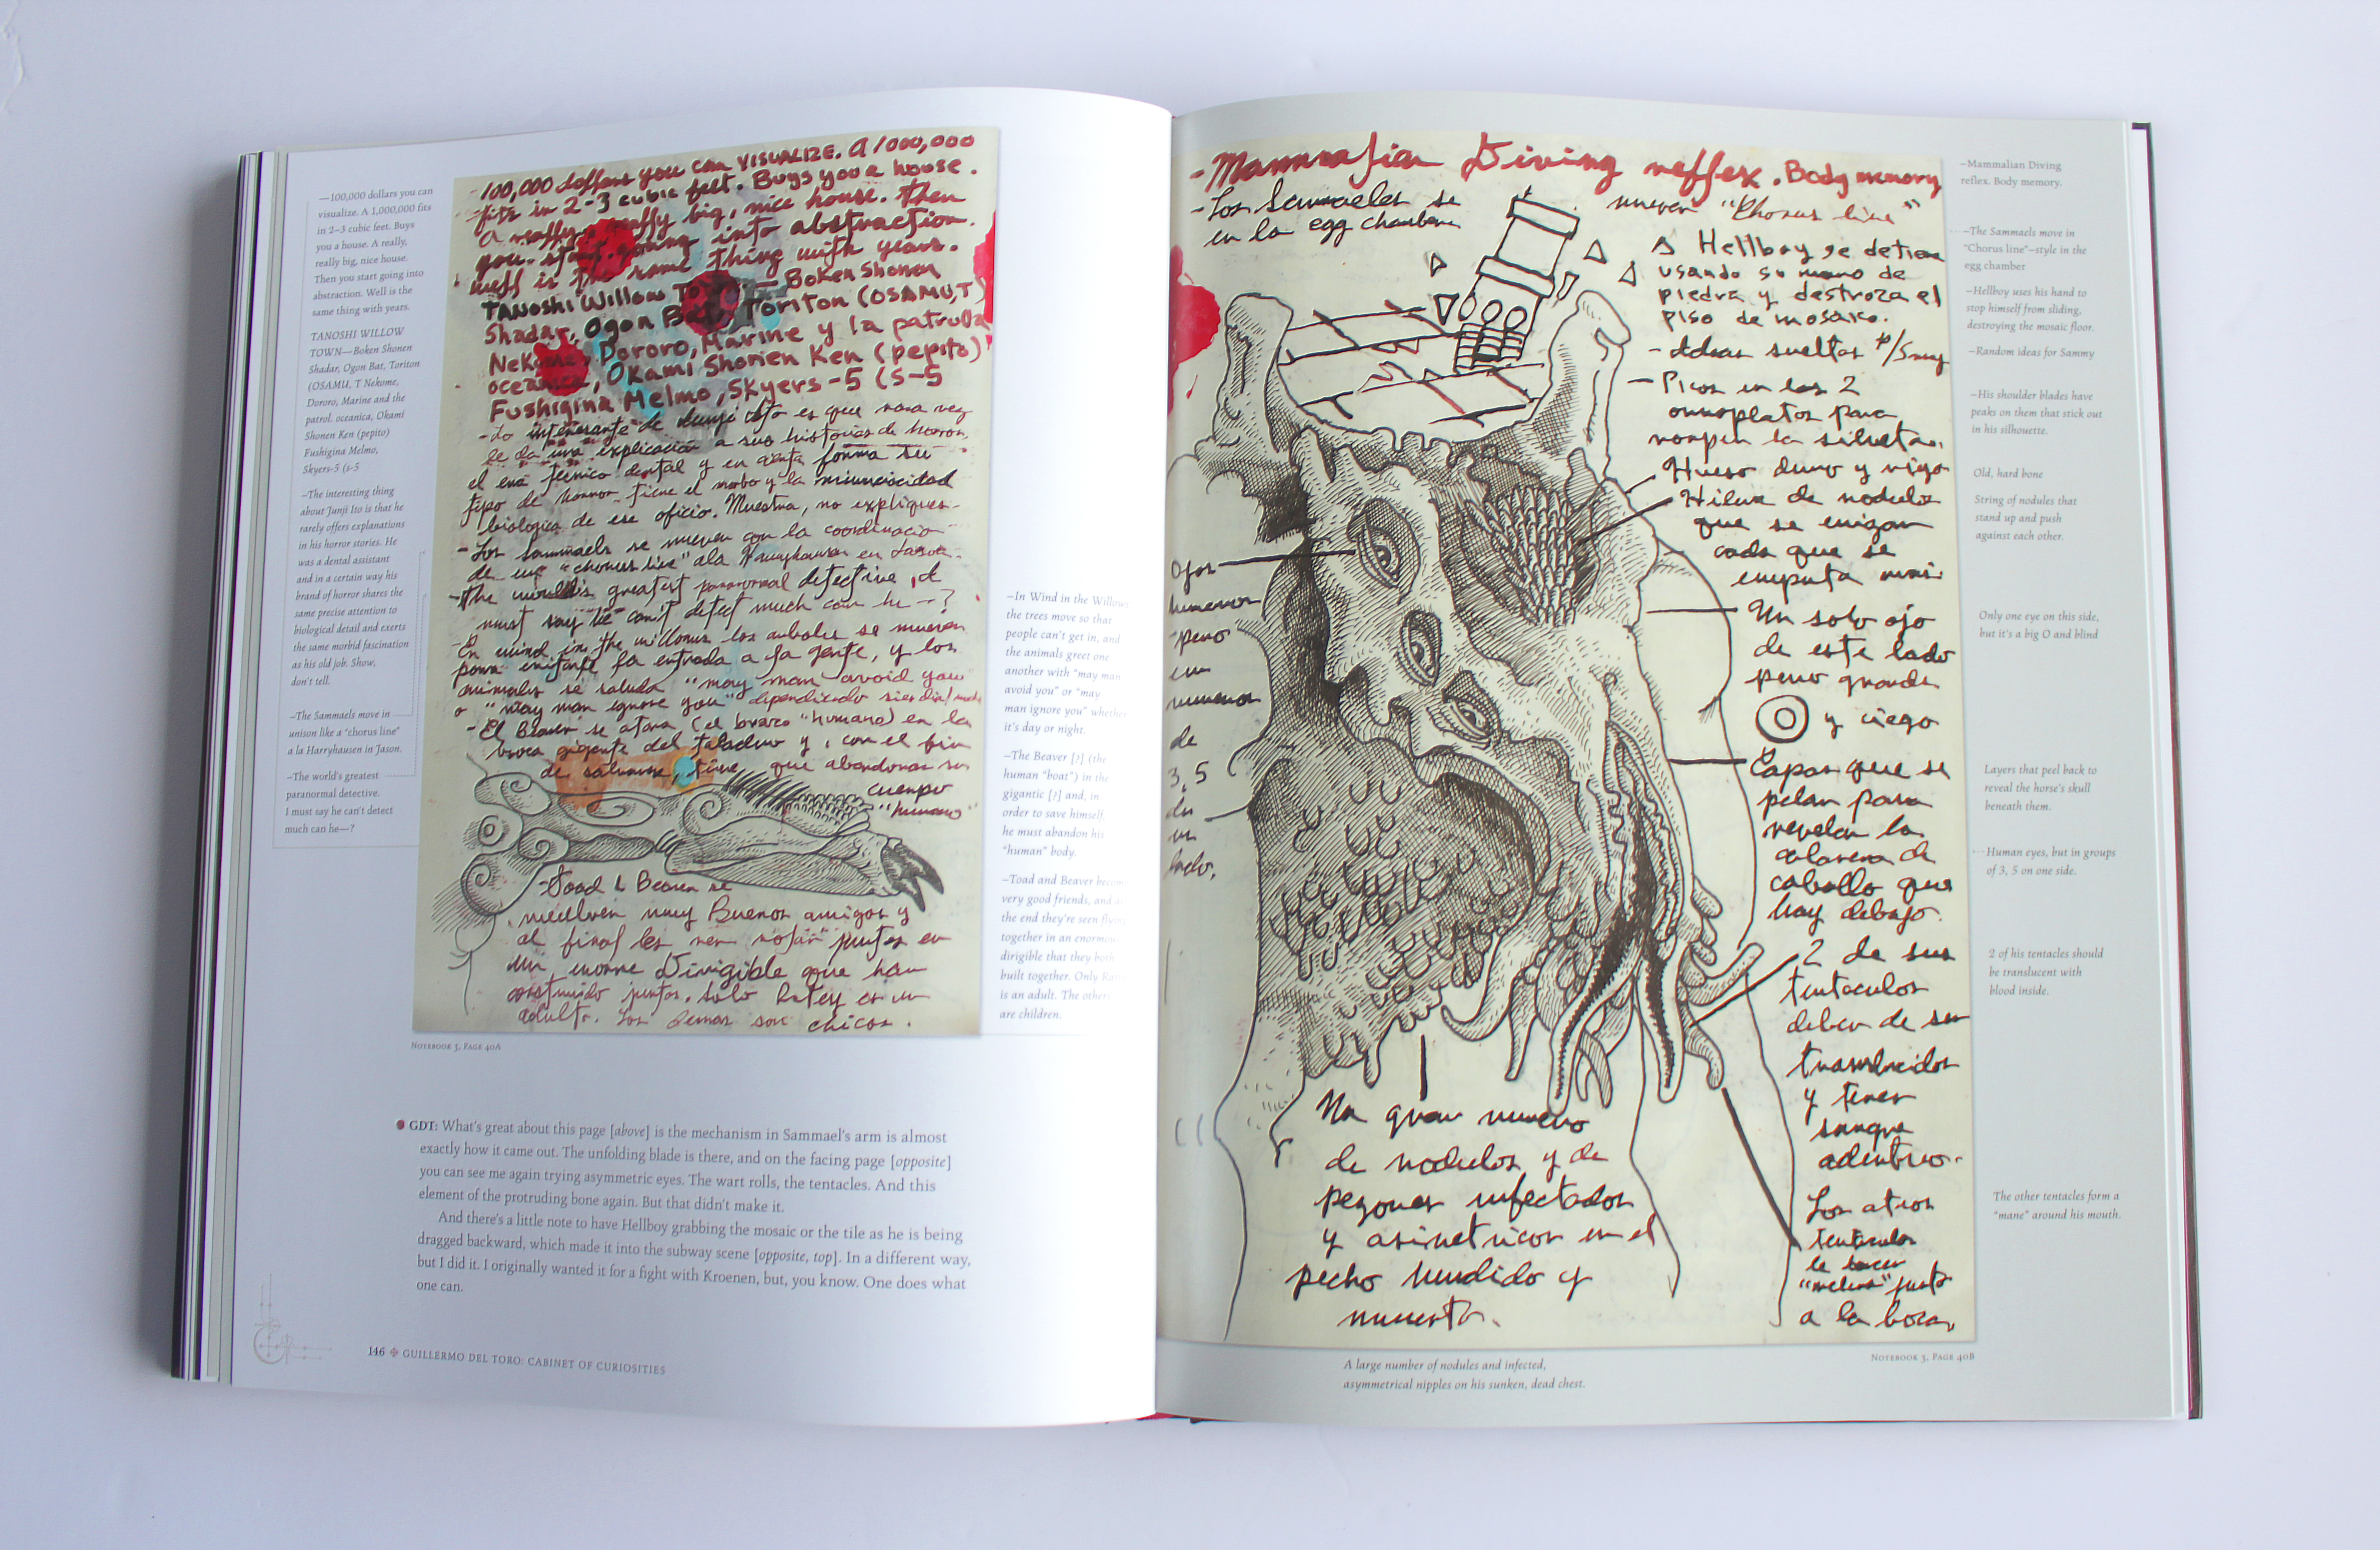 —100,000 dollars you can
visualize. A 1,000,000 fits
in 2–3 cubic feet. Buys
you a house. A really,
really big, nice house.
Then you start going into
abstraction. Well is the
same thing with years.
TANOSHI WILLOW
TOWN—Boken Shonen
Shadar, Ogon Bat, Toriton
(OSAMU, T Nekome,
Dororo, Marine and the
patrol. oceanica, Okami
Shonen Ken (pepito)
Fushigina Melmo,
Skyers-5 (s-5
–The interesting thing
about Junji Ito is that he
rarely offers explanations
in his horror stories. He
was a dental assistant
and in a certain way his
brand of horror shares the
same precise attention to
biological detail and exerts
the same morbid fascination
as his old job. Show,
don't tell.
–The Sammaels move in
unison like a "chorus line"
a la Harryhausen in Jason.
–The world's greatest
paranormal detective.
I must say he can't detect
much can he—?
- 100,000 dollars you can VISUALIZE. A 1000,000
fits in 2-3 cubic feet. Buys you a house.
A really, really big, nice house. then
you start going into abstraction.
well is the same thing with years.
TANOSHI Willow — Boken Shonen
Shadar, Ogon Bat, Toriton (OSAMU, T
Nekome, Dororo, Marine y la patrulla
oceanica, Okami Shonen Ken (pepito)
Fushigina Melmo, Skyers-5 (S-5
- Lo interesante de Junji Ito es que rara vez
le da una explicación a sus historias de horror.
el era técnico dental y en cierta forma su
tipo de horror tiene el morbo y la minunciocidad
biologica de ese oficio. Muestra, no expliques-
- Los Sammaels se mueven con la coordinacio
de un "chorus line" ala Harryhausen en Jason.
-the world's greatest paranormal detective, I
must say he can't detect much can he —?
- En wind in the willows los arboles se mueven
para evitarle la entrada a la gente, y los
animales se saluda "may man avoid you"
o "may man ignore you" dipendiendo si es dia/noche
- El Beaver se atora (el brazo "humano) en la
broca gigante del taladro y, con el fin
de salvarse, tiene que abandonar su
cuerpo
"humano"
-Toad & Beaver se
vuelven muy Buenos amigos y
al final les ven volar juntos en
un enorme Dirigible que han
construido juntos. solo Ratey es un
adulto. Los demas son chicos.
NOTEBOOK 3, PAGE 40A
–In Wind in the Willows
the trees move so that
people can't get in, and
the animals greet one
another with "may man
avoid you" or "may
man ignore you" whether
it's day or night.
–The Beaver [?] (the
human "boat") in the
gigantic [?] and, in
order to save himself,
he must abandon his
"human" body.
–Toad and Beaver become
very good friends, and at
the end they're seen flying
together in an enormous
dirigible that they both
built together. Only
is an adult. The others
are children.
GDT: What's great about this page [above] is the mechanism in Sammael's arm is almost
exactly how it came out. The unfolding blade is there, and on the facing page [opposite]
you can see me again trying asymmetric eyes. The wart rolls, the tentacles. And this
element of the protruding bone again. But that didn't make it.
And there's a little note to have Hellboy grabbing the mosaic or the tile as he is being
dragged backward, which made it into the subway scene [opposite, top]. In a different way,
but I did it. I originally wanted it for a fight with Kroenen, but, you know. One does what
one can.
146 GUILLERMO DEL TORO: CABINET OF CURIOSITIES
- Mammalian Diving reflex. Body memory
- Los Sammaeles se mueven "Chorus line"
en la egg chamber
Hellboy se detiene
usando su mano de
piedra y destroza el
piso de mosaico.
- Ideas sueltas p/Samy
- Picos en los 2
omoplatos para
romper la silueta.
Hueso duro y viejo
Hilera de nodulos
que se erizan
cada que se
emputa mas.
Un solo ojo
de este lado
pero grande
y ciego
Capas que se
pelan para
revelar la
calavera de
caballo que
hay debajo.
2 de sus
tentaculos
deben de ser
translucidos
y tener
sangre
adentro.
Los otros
tentaculos
le hacen
"melena" junto
a la boca.
Ojos
humanos
pero
en
numero
de
3, 5
de
un
lado.
Un gran numero
de nodulos y de
pezones infectados
y asimetricos en el
pecho hundido y
muerto.
A large number of nodules and infected,
asymmetrical nipples on his sunken, dead chest.
NOTEBOOK 3, PAGE 40B
–Mammalian Diving
reflex. Body memory.
–The Sammaels move in
"Chorus line"–style in the
egg chamber
–Hellboy uses his hand to
stop himself from sliding,
destroying the mosaic floor.
–Random ideas for Sammy
–His shoulder blades have
peaks on them that stick out
in his silhouette.
Old, hard bone
String of nodules that
stand up and push
against each other.
Only one eye on this side,
but it's a big O and blind
Layers that peel back to
reveal the horse's skull
beneath them.
Human eyes, but in groups
of 3, 5 on one side.
2 of his tentacles should
be translucent with
blood inside.
The other tentacles form a
"mane" around his mouth.